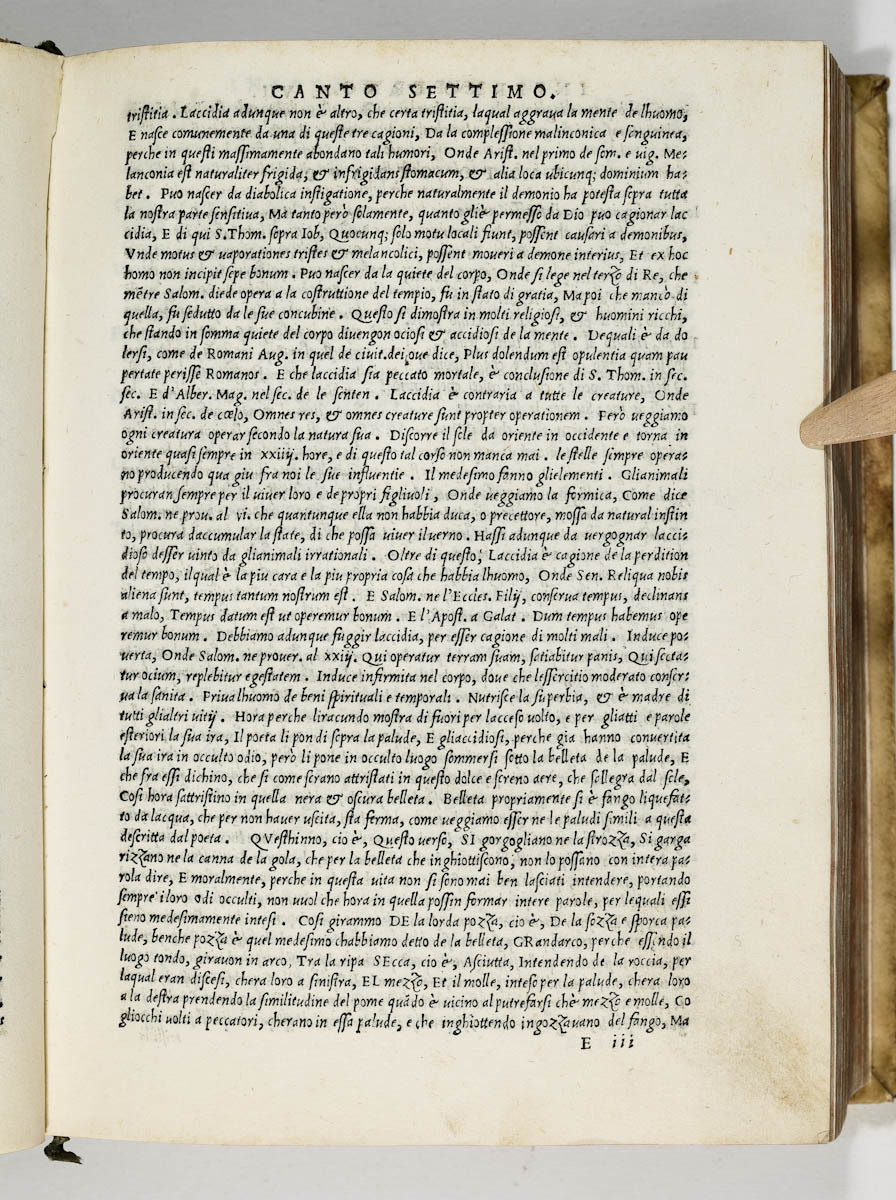 CANTO SETTIMO.
tristitia. Laccidia adunque non è altro, che certa tristitia, laqual aggraua la mente de lhuomo,
E nasce comunemente da una di queste tre cagioni, Da la complessione malinconica e senguinea,
perche in questi massimamente abondano tali humori, Onde Arist. nel primo de som. e uig. Me-
lanconia est naturaliter frigida, & infrigidans stomacum, & alia loca ubicunq; dominium ha-
bet. Puo nascer da diabolica instigatione, perche naturalmente il demonio ha potesta sopra tutta
la nostra parte sensitiua, Ma tanto però solamente, quanto gliè permesso da Dio puo cagionar lac
cidia, E di qui S. Thom. sopra Iob, Quocunq; solo motu locali fiunt, possent causari a demonibus,
Vnde motus & uaporationes tristes & melancolici, possent moueri a demone interius, Et ex hoc
homo non incipit sepe bonum. Puo nascer da la quiete del corpo, Onde si lege nel terzo di Re, che
mẽtre Salom. diede opera a la costruttione del tempio, fu in stato di gratia, Ma poi che mancò di
quella, fu sedutto da le sue concubine. Questo si dimostra in molti religiosi, & huomini ricchi,
che stando in somma quiete del corpo diuengon ociosi & accidiosi de la mente. Dequali è da do
lersi, come de Romani Aug. in quel de ciuit. dei oue dice, Plus dolendum est opulentia quam pau
pertate perisse Romanos. E che laccidia sia peccato mortale, è conclusione di S. Thom. in sec.
sec. E d'Alber. Mag. nel sec. de le senten. Laccidia è contraria a tutte le creature, Onde
Arist. in sec. de cœlo, Omnes res, & omnes creature sunt propter operationem. Però ueggiamo
ogni creatura operar secondo la natura sua. Discorre il sole da oriente in occidente e torna in
oriente quasi sempre in xxiiij. hore, e di questo tal corso non manca mai. le stelle sempre opera-
no producendo qua giu fra noi le sue influentie. Il medesimo fanno glielementi. Glianimali
procuran sempre per il uiuer loro e de propri figliuoli, Onde ueggiamo la formica, Come dice
Salom. ne prou. al vi. che quantunque ella non habbia duca, o precettore, mossa da natural instin
to, procura daccumular la state, di che possa uiuer il uerno. Hassi adunque da uergognar lacci-
dioso desser uinto da glianimali irrationali. Oltre di questo, Laccidia è cagione de la perdition
del tempo, ilqual è la piu cara e la piu propria cosa che habbia lhuomo, Onde Sen. Reliqua nobis
aliena sunt, tempus tantum nostrum est. E Salom. ne l'Eccles. Filij, conserua tempus, declinans
a malo, Tempus datum est ut operemur bonum. E l'Apost. a Galat. Dum tempus habemus ope
remur bonum. Debbiamo adunque fuggir laccidia, per esser cagione di molti mali. Induce po-
uerta, Onde Salom. ne prouer. al xxiij. Qui operatur terram suam, satiabitur panis, Qui secta-
tur ocium, replebitur egestatem. Induce infirmita nel corpo, doue che lessercitio moderato conser-
ua la sanita. Priua lhuomo de beni spirituali e temporali. Nutrisce la superbia, & è madre di
tutti glialtri uitij. Hora perche liracundo mostra di fuori per lacceso uolto, e per gliatti e parole
esteriori la sua ira, Il poeta li pon di sopra la palude, E gliaccidiosi, perche gia hanno conuertita
la sua ira in occulto odio, però li pone in occulto luogo sommersi sotto la belleta de la palude, E
che fra essi dichino, che si come serano attristati in questo dolce e sereno aere, che sellegra dal sole,
Cosi hora sattristino in quella nera & oscura belleta. Belleta propriamente si è fango liquefat-
to da lacqua, che per non hauer uscita, sta ferma, come ueggiamo esser ne le paludi simili a questa
descritta dal poeta. QVesthinno, cio è, Questo uerso, SI gorgogliano ne la strozza, Si garga
rizzano ne la canna de la gola, che per la belleta che inghiottiscono, non lo possano con intera pa-
rola dire, E moralmente, perche in questa uita non si sono mai ben lasciati intendere, portando
sempre i loro odi occulti, non uuol che hora in quella possin formar intere parole, per lequali essi
sieno medesimamente intesi. Cosi girammo DE la lorda pozza, cio è, De la sozza e sporca pa-
lude, benche pozza è quel medesimo chabbiamo detto de la belleta, GRandarco, perche essendo il
luogo tondo, girauon in arco, Tra la ripa SEcca, cio è, Asciutta, Intendendo de la roccia, per
laqual eran discesi, chera loro a sinistra, EL mezzo, Et il molle, inteso per la palude, chera loro
a la destra prendendo la similitudine del pome quãdo è uicino al putrefarsi chè mezzo e molle, Co
gliocchi uolti a peccatori, cherano in essa palude, e che inghiottendo ingozzauano del fango, Ma
E iii